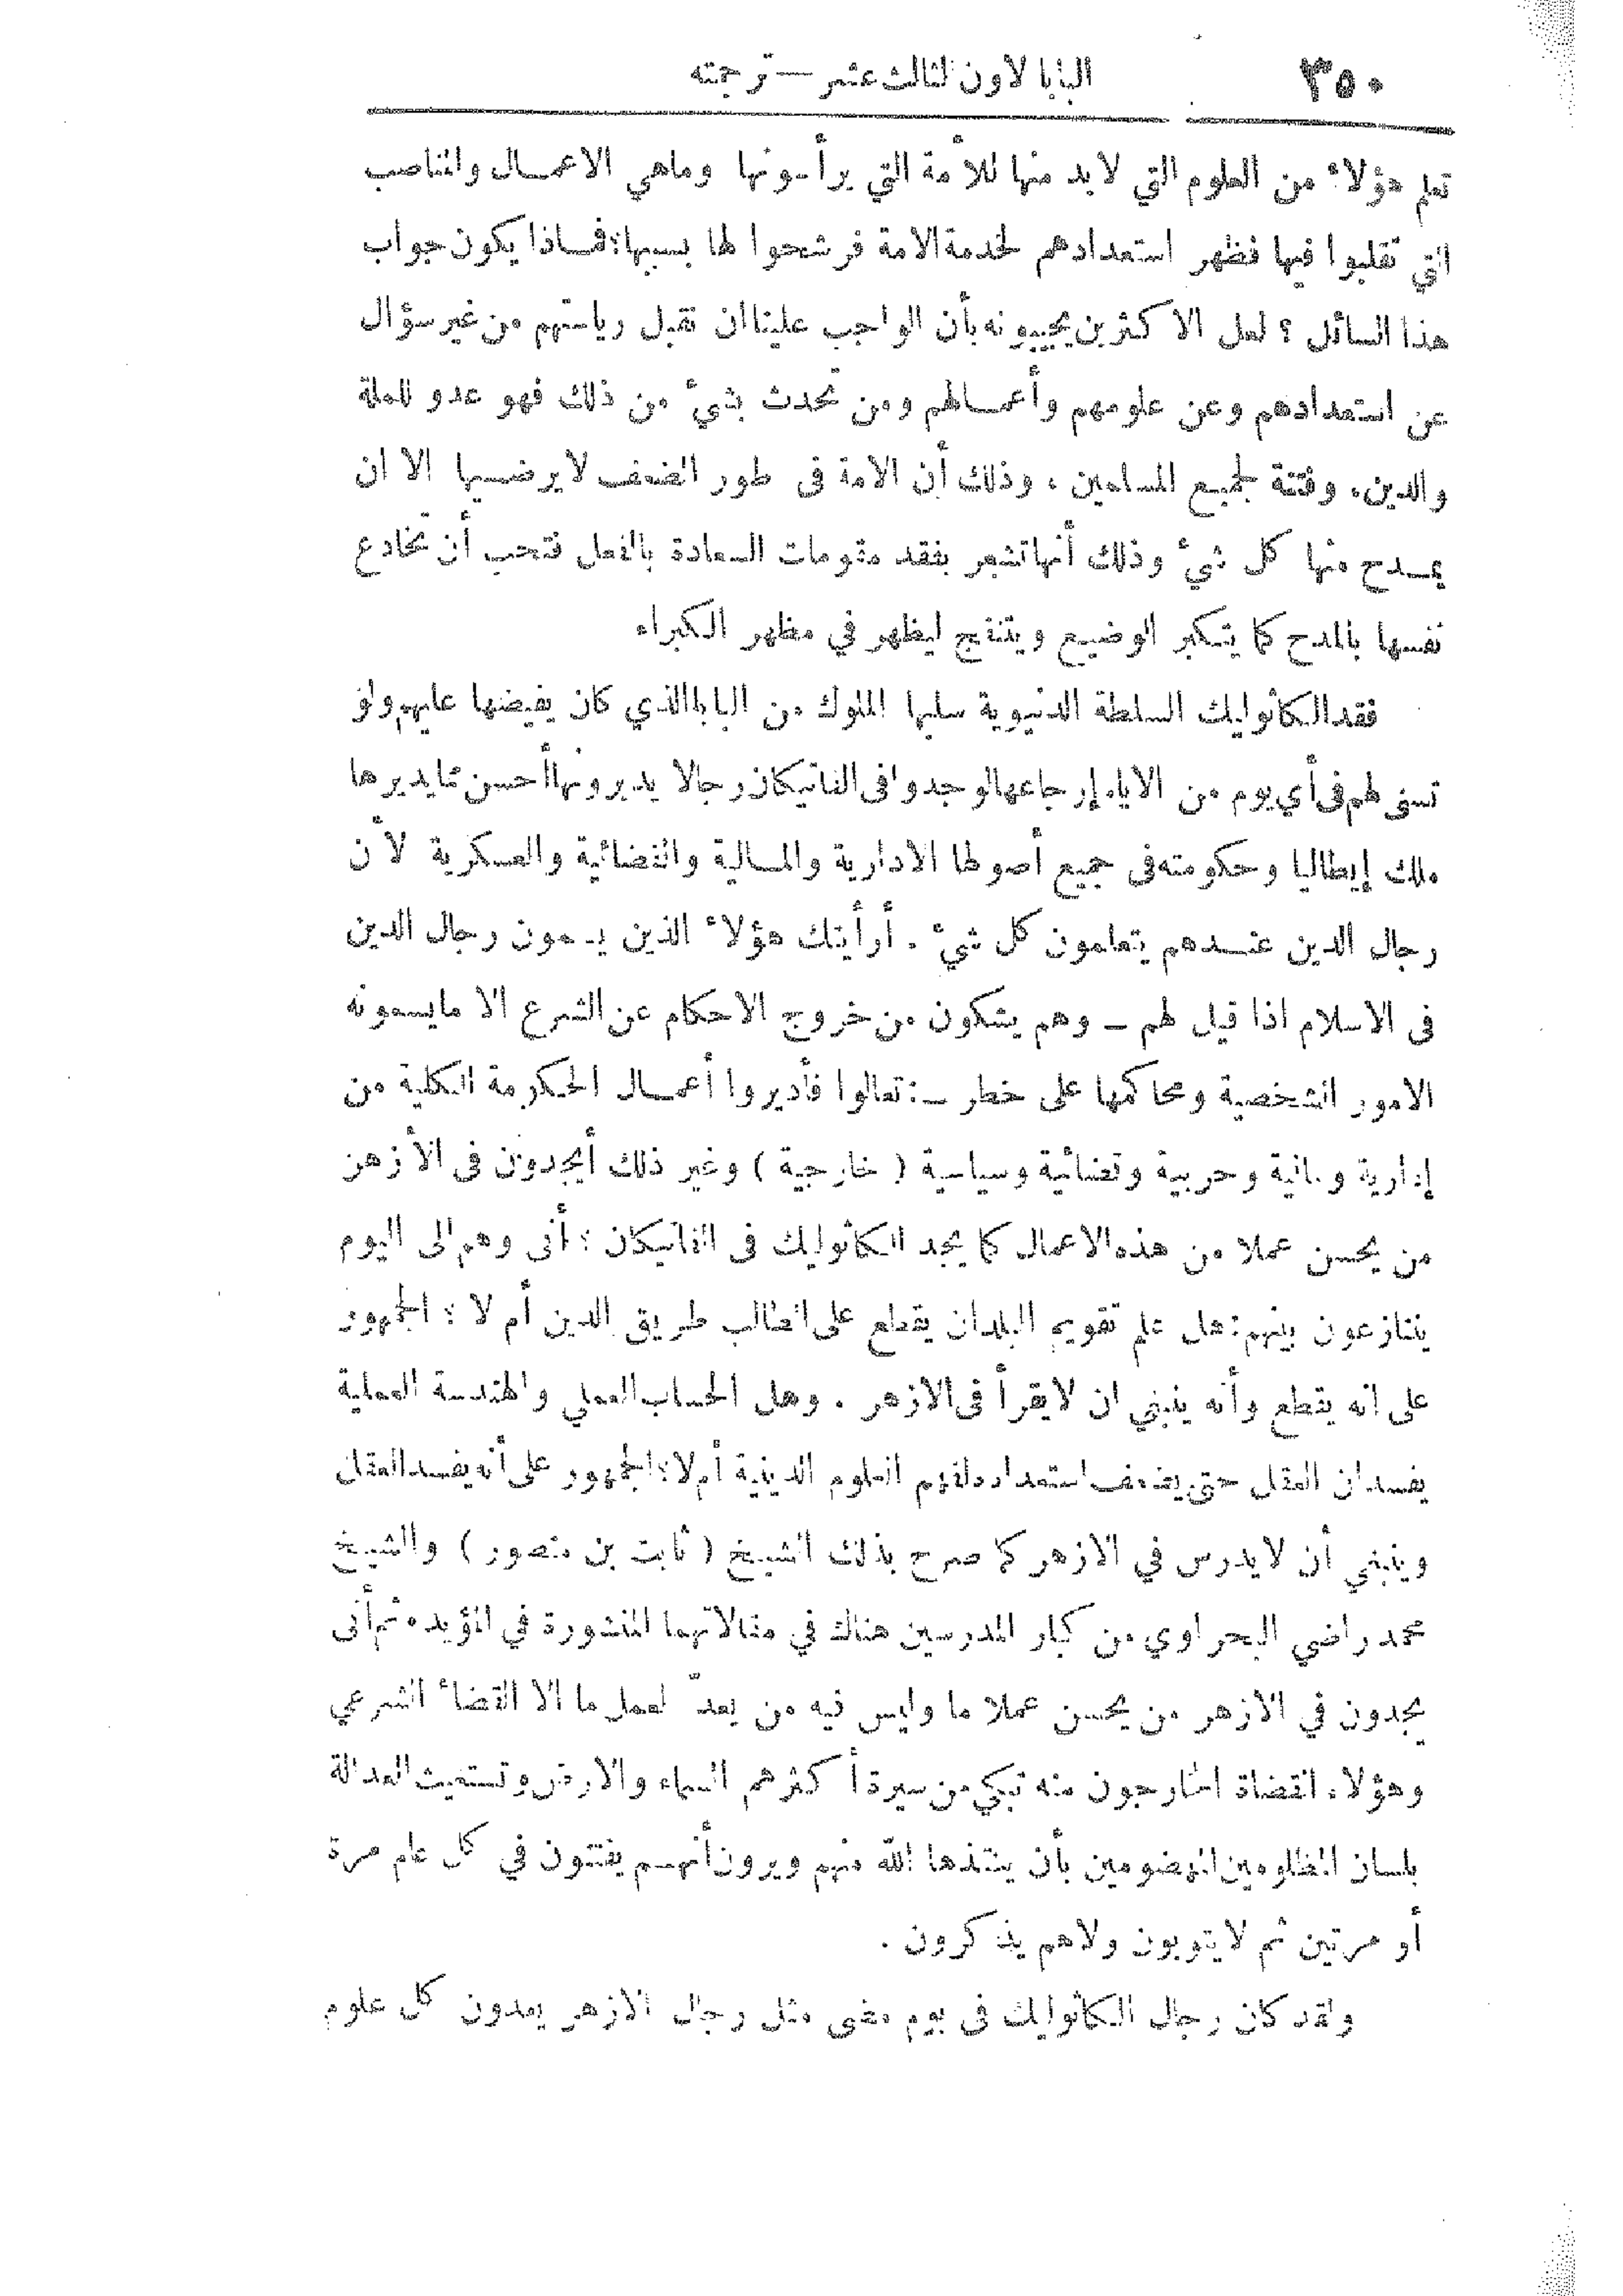 ٣٥٠ البابا لاون الثالث عشر — ترجمته
تعلم هؤلاء من العلوم التي لا بد منها للأمة التي يرأسونها وماهي الاعمال والمناصب
التي تقلبوا فيها فظهر استعدادهم لخدمة الامة فرشحوا لها بسببها؛ فماذا يكون جواب
هذا السائل ؟ لعل الاكثرين يجيبونه بأن الواجب علينا ان نقبل رياستهم من غير سؤال
عن استعدادهم وعن علومهم وأعمالهم ومن تحدث بشيء من ذلك فهو عدو للملة
والدين، وفتنة لجميع المسلمين ، وذلك أن الامة فى طور الضعف لا يرضيها الا ان
يمدح منها كل شيء وذلك أنها تشعر بفقد مقومات السعادة بالفعل فتحب أن تخادع
نفسها بالمدح كما يتكبر الوضيع ويتنفج ليظهر في مظهر الكبراء
فقد الكاثوليك السلطة الدنيوية سلبها الملوك من البابا الذي كان يفيضها عليهم ولو
تسنى لهم فى أي يوم من الايام إرجاعها لوجدوا فى الفاتيكان رجالا يديرونها أحسن مما يديرها
ملك إيطاليا وحكومته فى جميع أصولها الادارية والمالية والقضائية والعسكرية لأن
رجال الدين عندهم يتعلمون كل شيء . أرأيتك هؤلاء الذين يسمون رجال الدين
فى الاسلام اذا قيل لهم ــ وهم يشكون من خروج الاحكام عن الشرع الا مايسمونه
الامور الشخصية ومحاكمها على خطر ــ : تعالوا فأديروا أعمال الحكومة الكلية من
إدارية ومالية وحربية وقضائية وسياسية ( خارجية ) وغير ذلك أيجدون فى الأزهر
من يحسن عملا من هذه الاعمال كما يجد الكاثوليك فى الفاتيكان ؛ أنى وهم الى اليوم
يتنازعون بينهم: هل علم تقويم البلدان يقطع على الطالب طريق الدين أم لا ؛ الجمهور
على انه يقطع وأنه ينبغي ان لا يقرأ فى الازهر . وهل الحساب العملي والهندسة العملية
يفسدان العقل حتى يضعف استعداده لفهم العلوم الدينية أم لا؛ الجمهور على أنه يفسد العقل
وينبغي أن لا يدرس في الازهر كما صرح بذلك الشيخ ( ثابت بن منصور ) والشيخ
محمد راضي البحراوي من كبار المدرسين هناك في مقالاتهما المنشورة في المؤيد، ثم أنى
يجدون في الازهر من يحسن عملا ما وليس فيه من يعدّ لعمل ما الا القضاء الشرعي
وهؤلاء القضاة الخارجون منه تبكي من سيرة أكثرهم السماء والارض وتستغيث العدالة
بلسان المظلومين المهضومين بأن ينقذها الله منهم ويرون أنهم يفتنون في كل عام مرة
أو مرتين ثم لا يتوبون ولا هم يذكرون .
ولقد كان رجال الكاثوليك فى يوم مضى مثل رجال الازهر يعدون كل علوم